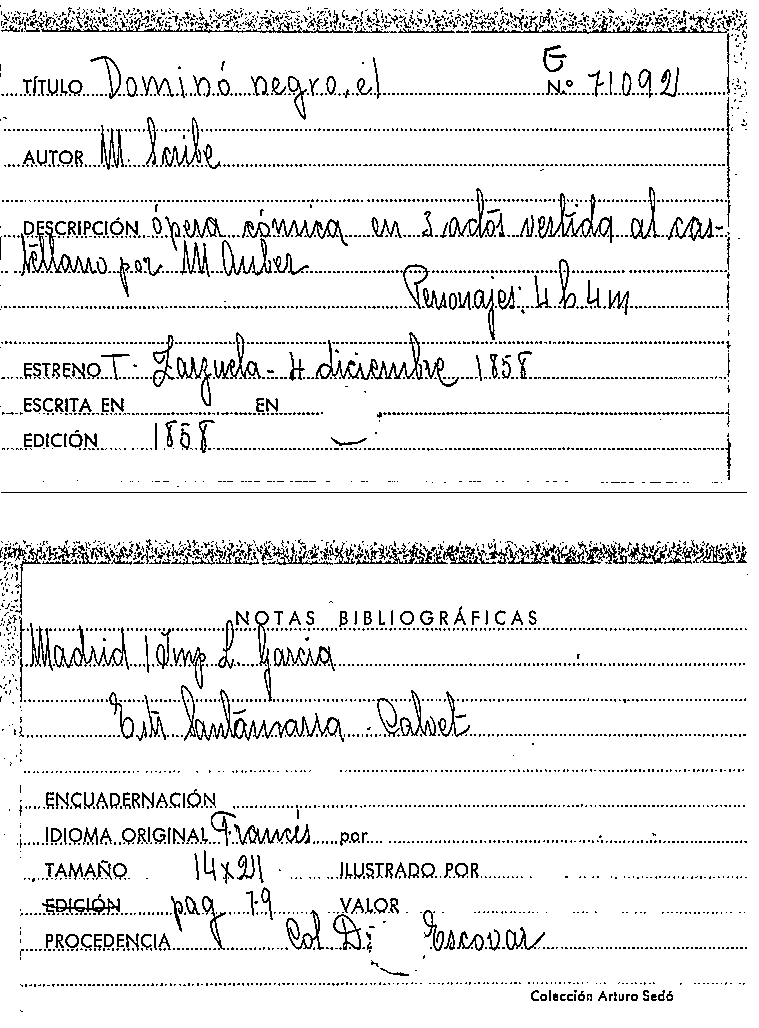 E
TÍTULO Dominó negro, el N.º 71092
AUTOR M. Scribe
DESCRIPCIÓN ópera cómica en 3 actos vestida al cas-
tellano por M Auber
Personajes: 4 h 4 m
ESTRENO T. Zarzuela - 4 diciembre 1858
ESCRITA EN EN
EDICIÓN 1858
NOTAS BIBLIOGRÁFICAS
Madrid / Imp L. Garcia
Santamaria - Calvet
ENCUADERNACIÓN
IDIOMA ORIGINAL Francés por
TAMAÑO 14x21 ILUSTRADO POR
EDICIÓN pag 79 VALOR
PROCEDENCIA Col Dr Escovar
Colección Arturo Sedó